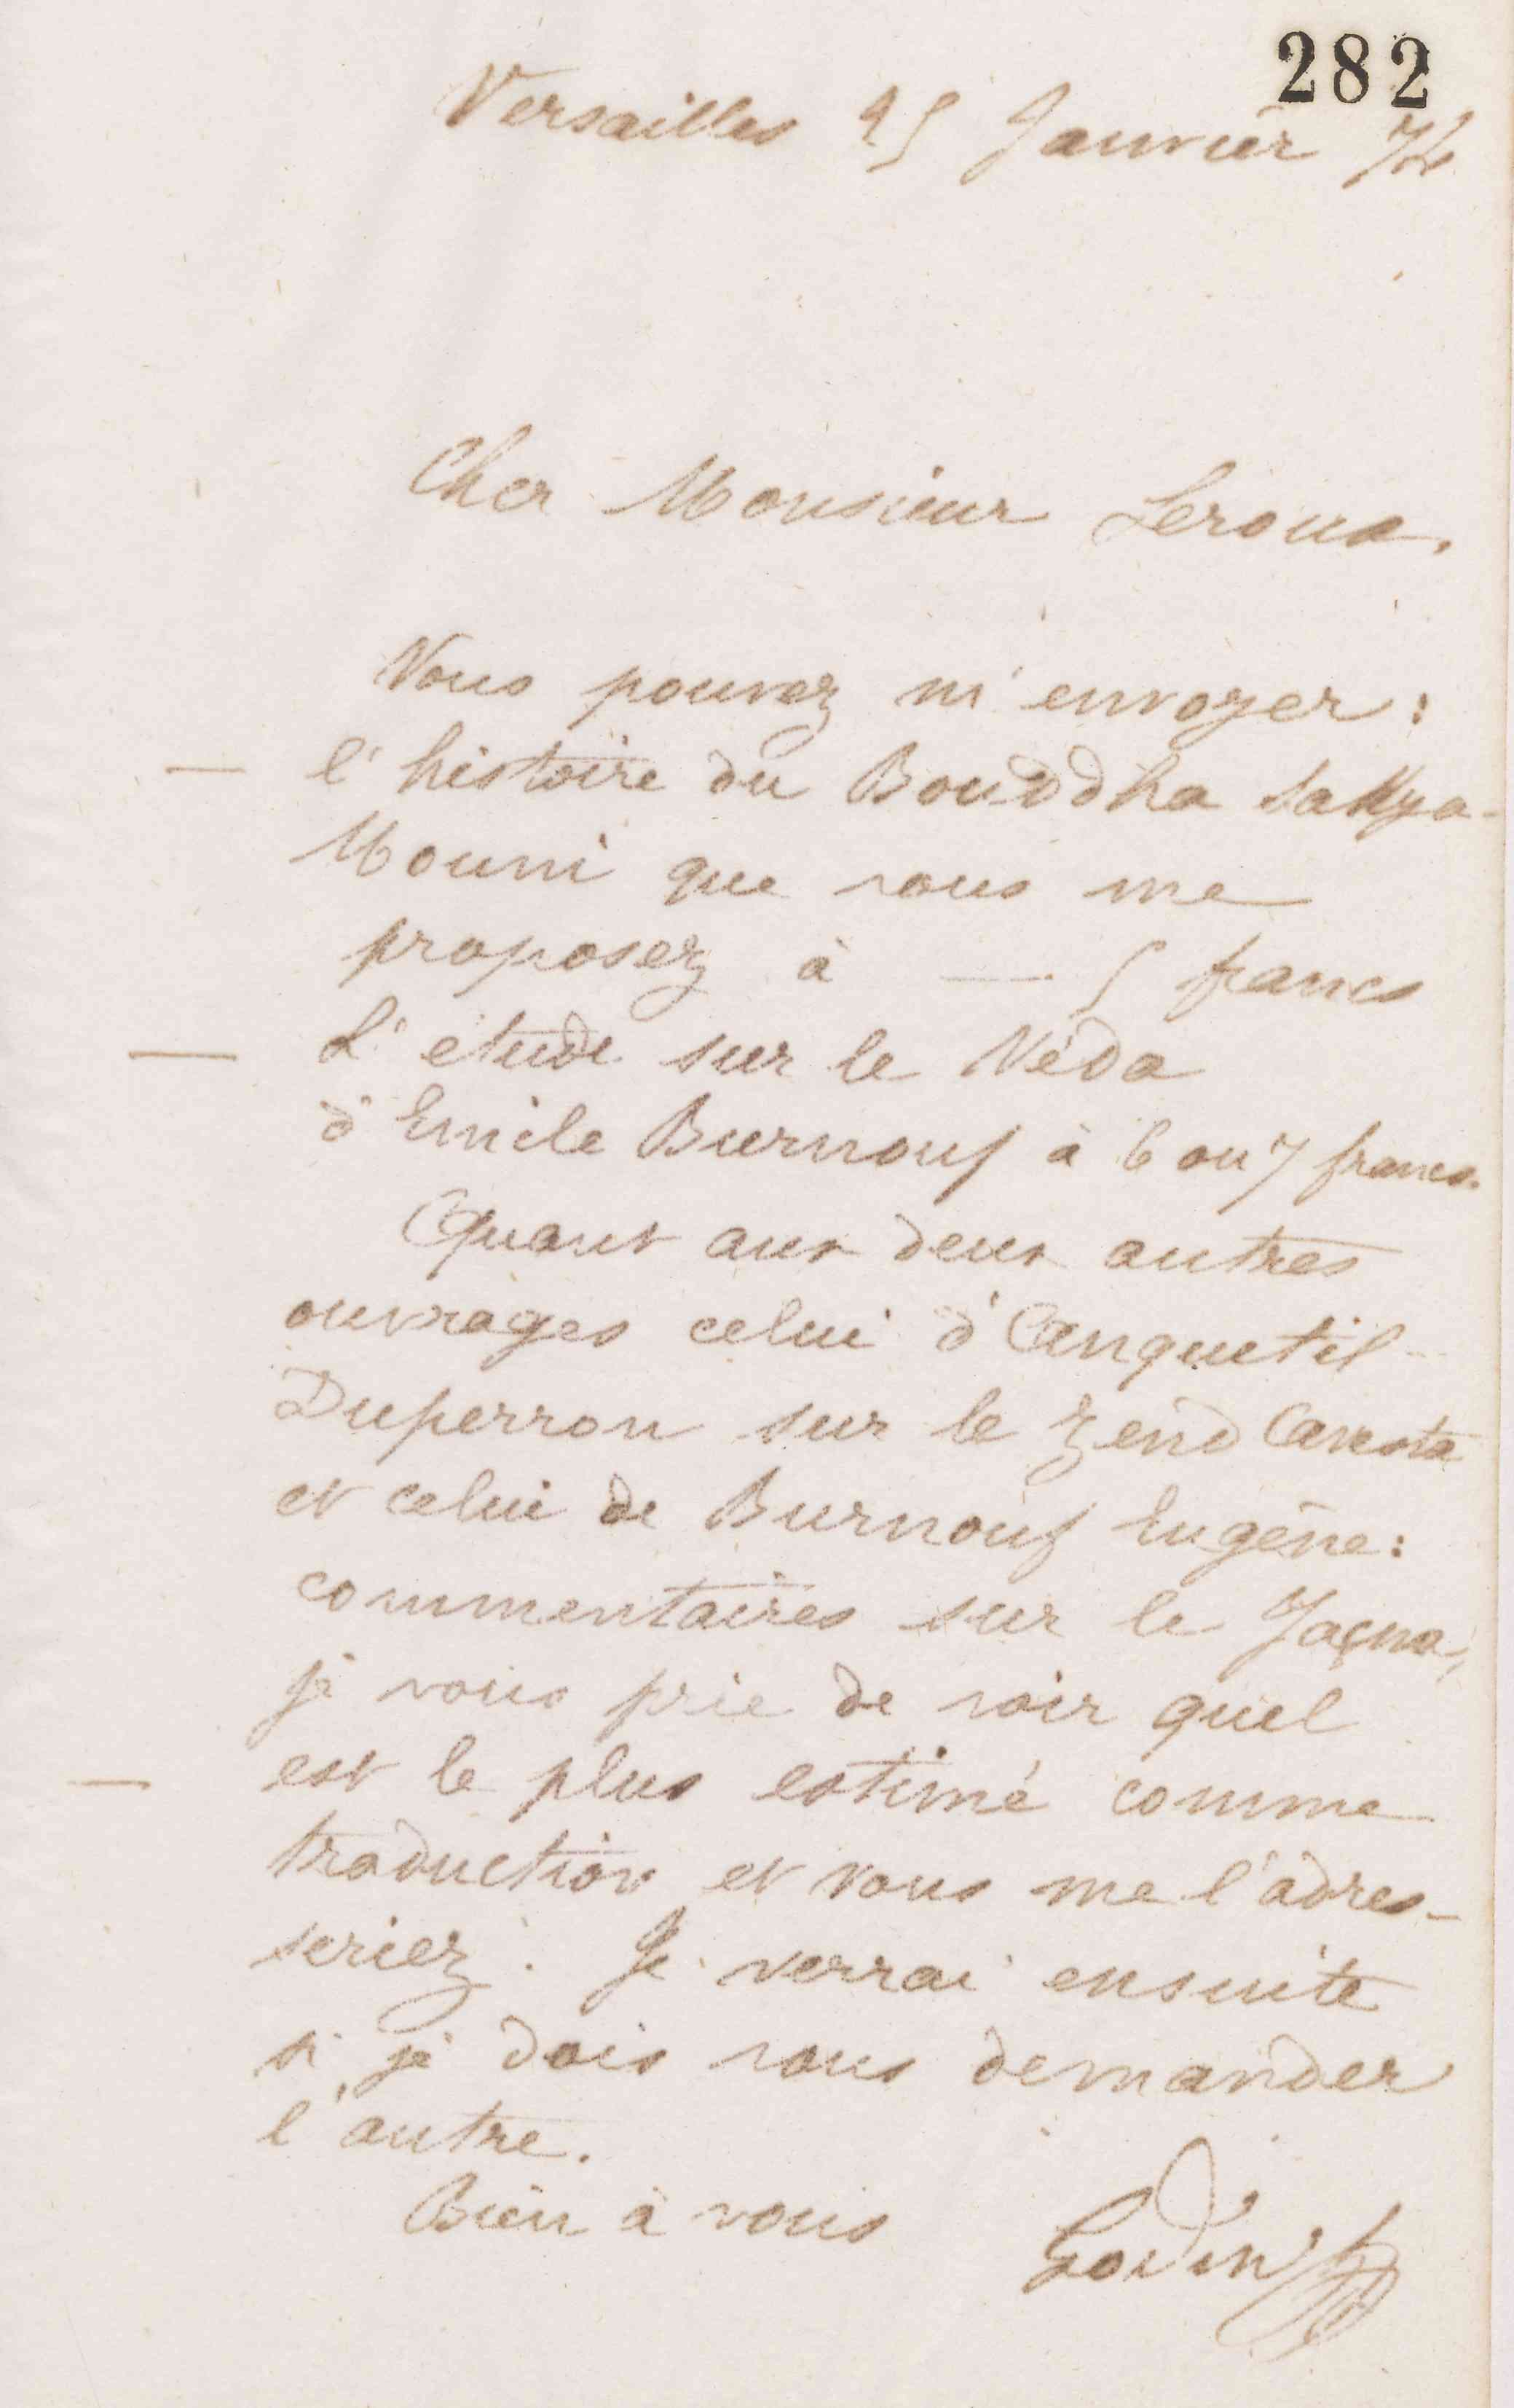 282
Versailles 25 Janvier 74
Cher Monsieur Leroux,
Vous pouvez m'envoyer :
— l'histoire du Bouddha Sakya-
Mouni que vous me
proposez à — 5 francs
— L'étude sur le Véda
d'Emile Burnouf à 6 ou 7 francs.
Quant aux deux autres
ouvrages celui d'Anquetil-
Duperron sur le Zend Avesta
et celui de Burnouf Eugène :
commentaires sur le Yaçna,
je vous prie de voir quel
— est le plus estimé comme
traduction et vous me l'adres-
seriez. Je verrai ensuite
si je dois vous demander
l'autre.
Bien à vous
Godin